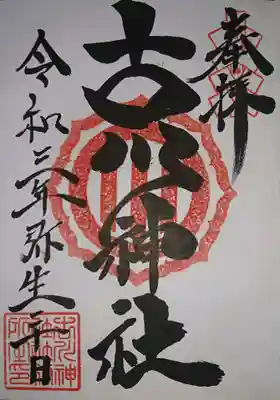 奉拝
古川神社
令和三年弥生二十日